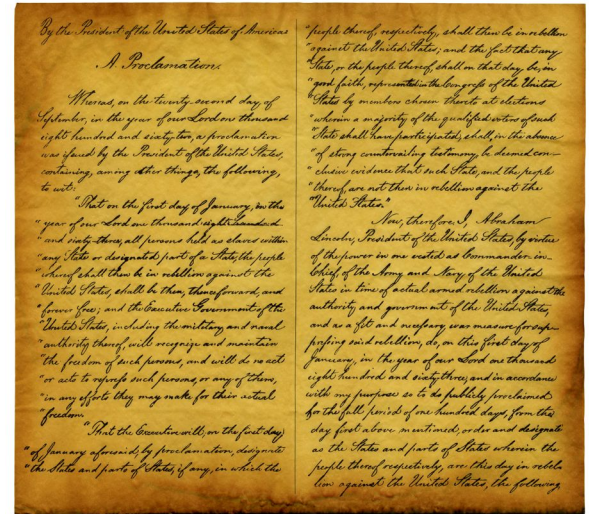 By the President of the United States of America
A Proclamation.
Whereas, on the twenty-second day of
September, in the year of our Lord one thousand
eight hundred and sixty-two, a proclamation
was issued by the President of the United States,
containing, among other things, the following,
to wit:
"That on the first day of January, in the
"year of our Lord one thousand eight hundred
"and sixty-three, all persons held as slaves within
"any State or designated part of a State, the people
"whereof shall then be in rebellion against the
"United States, shall be then, thenceforward, and
"forever free; and the Executive Government of the
"United States, including the military and naval
"authority thereof, will recognize and maintain
"the freedom of such persons, and will do no act
"or acts to repress such persons, or any of them,
"in any efforts they may make for their actual
"freedom.
"That the Executive will, on the first day
"of January aforesaid, by proclamation, designate
"the States and parts of States, if any, in which the
"people thereof, respectively, shall then be in rebellion
"against the United States; and the fact that any
"State, or the people thereof, shall on that day be, in
"good faith, represented in the Congress of the United
"States by members chosen thereto at elections
"wherein a majority of the qualified voters of such
"State shall have participated, shall, in the absence
"of strong countervailing testimony, be deemed con-
"clusive evidence that such State, and the people
"thereof, are not then in rebellion against the
"United States."
Now, therefore, I, Abraham
Lincoln, President of the United States, by virtue
of the power in me vested as Commander-in-
Chief, of the Army and Navy of the United
States in time of actual armed rebellion against the
authority and government of the United States,
and as a fit and necessary war measure for sup-
pressing said rebellion, do, on this first day of
January, in the year of our Lord one thousand
eight hundred and sixty three, and in accordance
with my purpose so to do publicly proclaimed
for the full period of one hundred days, from the
day first above mentioned, order and designate
as the States and parts of States wherein the
people thereof respectively, are this day in rebel-
lion against the United States, the following